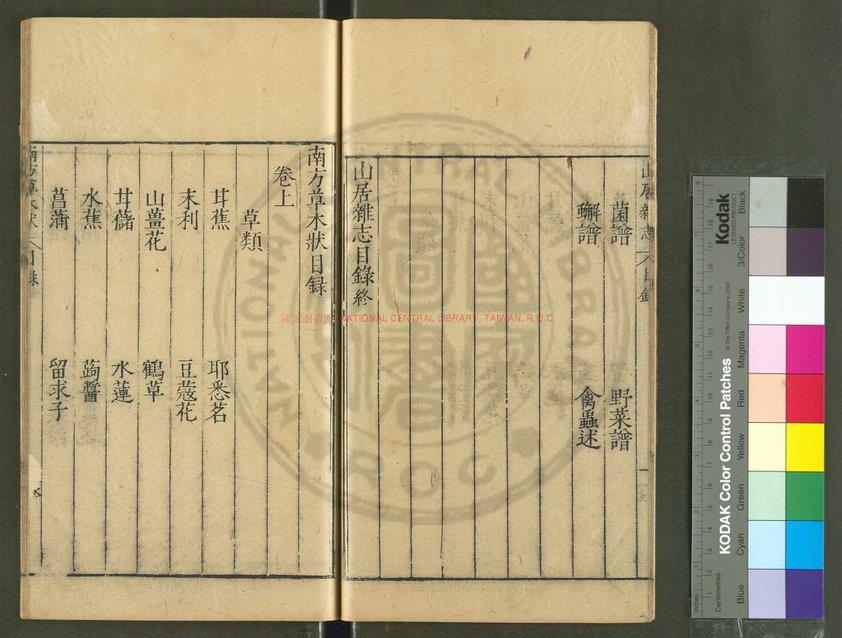 山居雜志 目錄
菌譜 野菜譜
蠏譜 禽蟲述
山居雜志目錄終
南方草木狀目録
卷上
草類
甘蕉 耶悉茗
末利 豆蔻花
山薑花 鶴草
甘藷 水蓮
水蕉 蒟醬
菖蒲 留求子
南方草木狀 目録
國家圖書館 NATIONAL CENTRAL LIBRARY, TAIWAN, R.O.C.
Kodak
KODAK Color Control Patches
© The Tiffen Company, 2000
Black
3/Color
White
Magenta
Red
Yellow
Green
Cyan
Blue
Inches
Centimetres